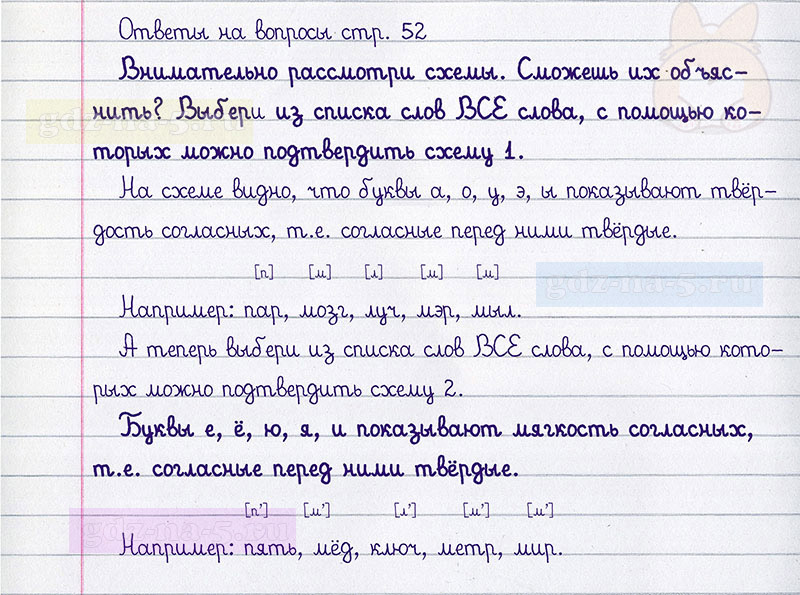 Ответы на вопросы стр. 52
Внимательно рассмотри схемы. Сможешь их объяс-
нить? Выбери из списка слов ВСЕ слова, с помощью ко-
торых можно подтвердить схему 1.
На схеме видно, что буквы а, о, у, э, ы показывают твёр-
дость согласных, т.е. согласные перед ними твёрдые.
[п] [м] [л] [м] [м]
gdz-na-5.ru
Например: пар, мозг, луч, мэр, мыл.
А теперь выбери из списка слов ВСЕ слова, с помощью кото-
рых можно подтвердить схему 2.
Буквы е, ё, ю, я, и показывают мягкость согласных,
т.е. согласные перед ними твёрдые.
[п'] [м'] [л'] [м'] [м']
gdz-na-5.ru
Например: пять, мёд, ключ, метр, мир.
gdz-na-5.ru